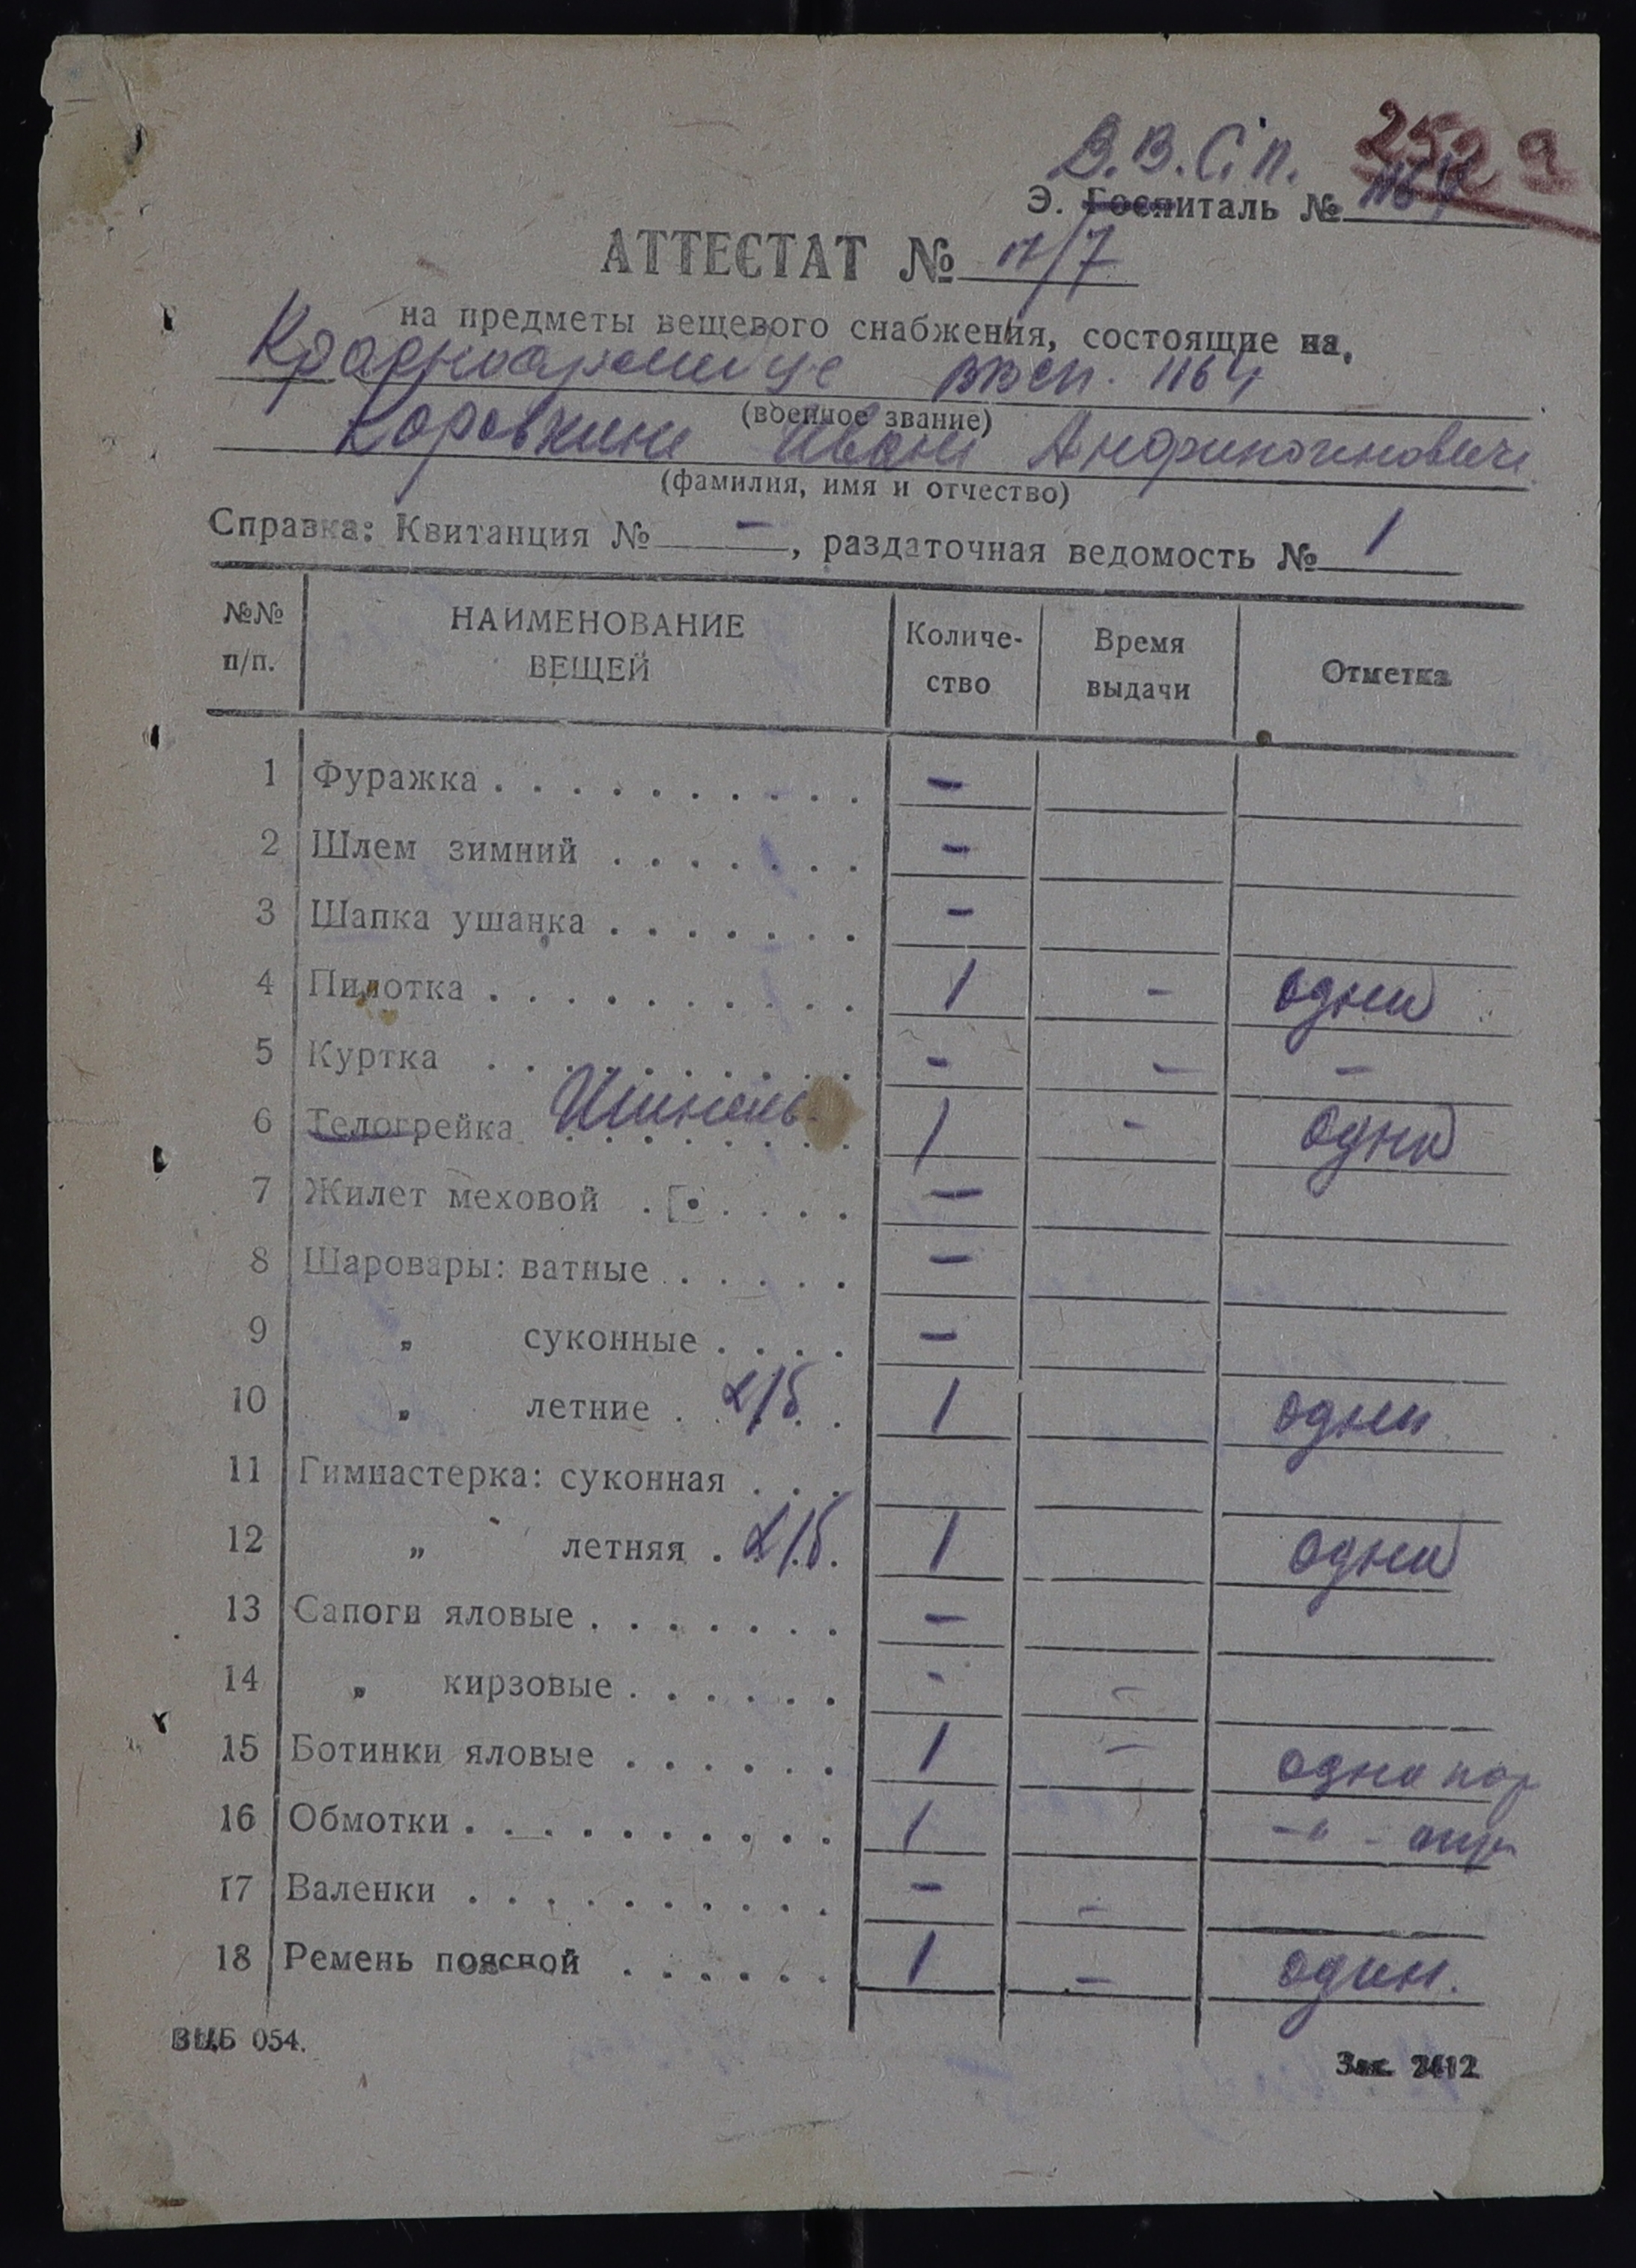 2529
В.В.С.П.
Э. Госпиталь № 1164
АТТЕСТАТ № п/7
на предметы вещевого снабжения, состоящие на
Красноармейце ввсп. 1164
(военное звание)
Коровкине Иване Анфиногиновиче
(фамилия, имя и отчество)
Справка: Квитанция № —, раздаточная ведомость № 1
№№ п/п. НАИМЕНОВАНИЕ ВЕЩЕЙ Количество Время выдачи Отметка
1 Фуражка . . . . . . . . . . –
2 Шлем зимний . . . . . . . –
3 Шапка ушанка . . . . . . . –
4 Пилотка . . . . . . . . . . 1 – одна
5 Куртка . . . . . . . . . . – – –
6 Телогрейка Шинель 1 – одна
7 Жилет меховой . . . . . . –
8 Шаровары: ватные . . . . . –
9 „ суконные . . . . –
10 „ летние . х/б. . 1 одни
11 Гимнастерка: суконная . . .
12 „ летняя . х/б. 1 одна
13 Сапоги яловые . . . . . . . –
14 „ кирзовые . . . . . . – –
15 Ботинки яловые . . . . . . 1 – одна пар
16 Обмотки . . . . . . . . . . 1 –"–
17 Валенки . . . . . . . . . . – –
18 Ремень поясной . . . . . . 1 – один.
ВЦБ 054.
Зак. 2412